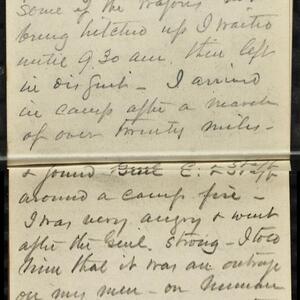 some of the wagons
being hitched up I waited
until 9.30 am. then left
in disgust - I arrived
in camp after a march
of over twenty miles -
& found Genl C. & Staff
around a camp fire -
I was very angry & went
after the Genl. strong - I told
him that it was an outrage
on my men - on